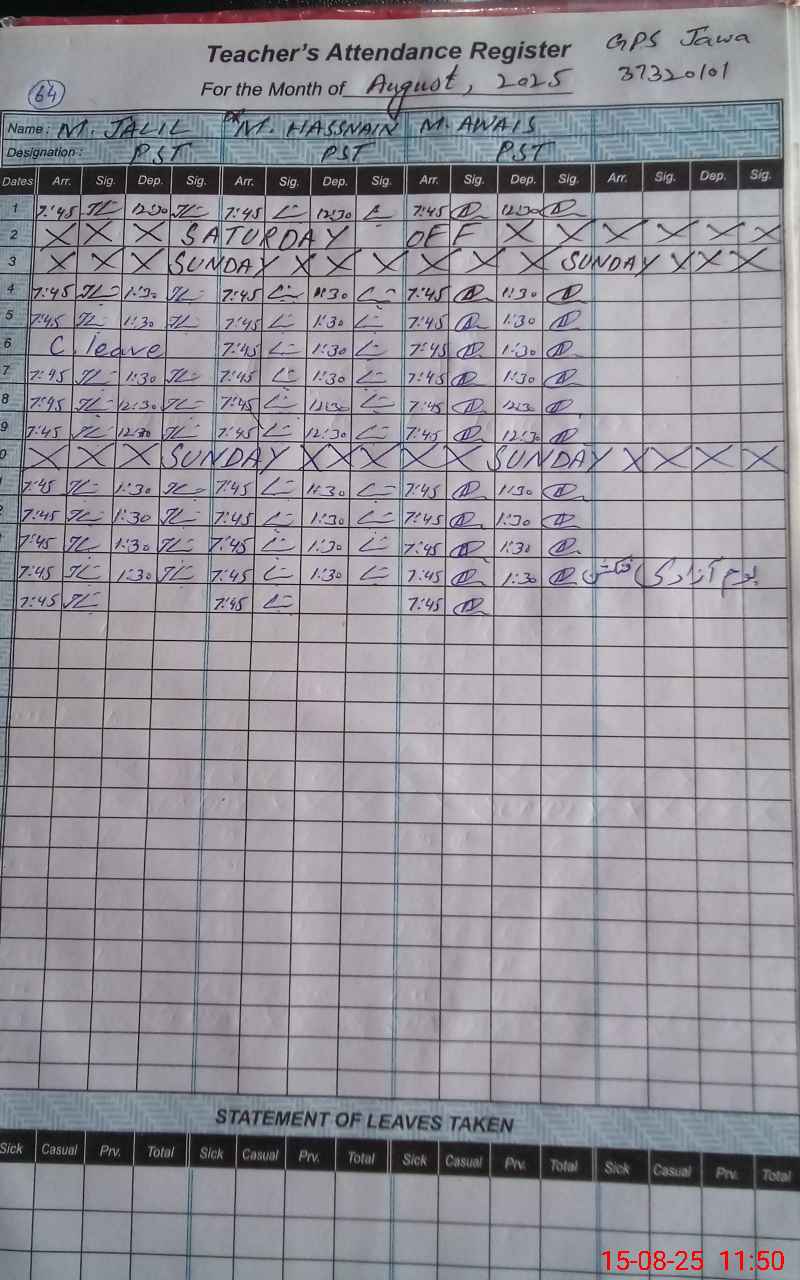 Teacher's Attendance Register GPS Jawa
For the Month of August, 2025 37320101
64
Name : M. JALIL M. HASSNAIN M. AWAIS
Designation : PST PST PST
Dates Arr. Sig. Dep. Sig. Arr. Sig. Dep. Sig. Arr. Sig. Dep. Sig. Arr. Sig. Dep. Sig.
1 7:45 12:30 7:45 12:30 7:45 12:30
2 X X X SATURDAY OFF X X X X X X
3 X X X SUNDAY X X X X X X SUNDAY X X X
4 7:45 1:30 7:45 1:30 7:45 1:30
5 7:45 1:30 7:45 1:30 7:45 1:30
6 C. leave 7:45 1:30 7:45 1:30
7 7:45 1:30 7:45 1:30 7:45 1:30
8 7:45 12:30 7:45 12:30 7:45 12:30
9 7:45 12:30 7:45 12:30 7:45 12:30
0 X X X SUNDAY X X X X X SUNDAY X X X X
7:45 1:30 7:45 1:30 7:45 1:30
7:45 1:30 7:45 1:30 7:45 1:30
7:45 1:30 7:45 1:30 7:45 1:30
7:45 1:30 7:45 1:30 7:45 1:30 یوم آزادی فنکشن
7:45 7:45 7:45
STATEMENT OF LEAVES TAKEN
Sick Casual Prv. Total Sick Casual Prv. Total Sick Casual Prv. Total Sick Casual Prv. Total
15-08-25 11:50